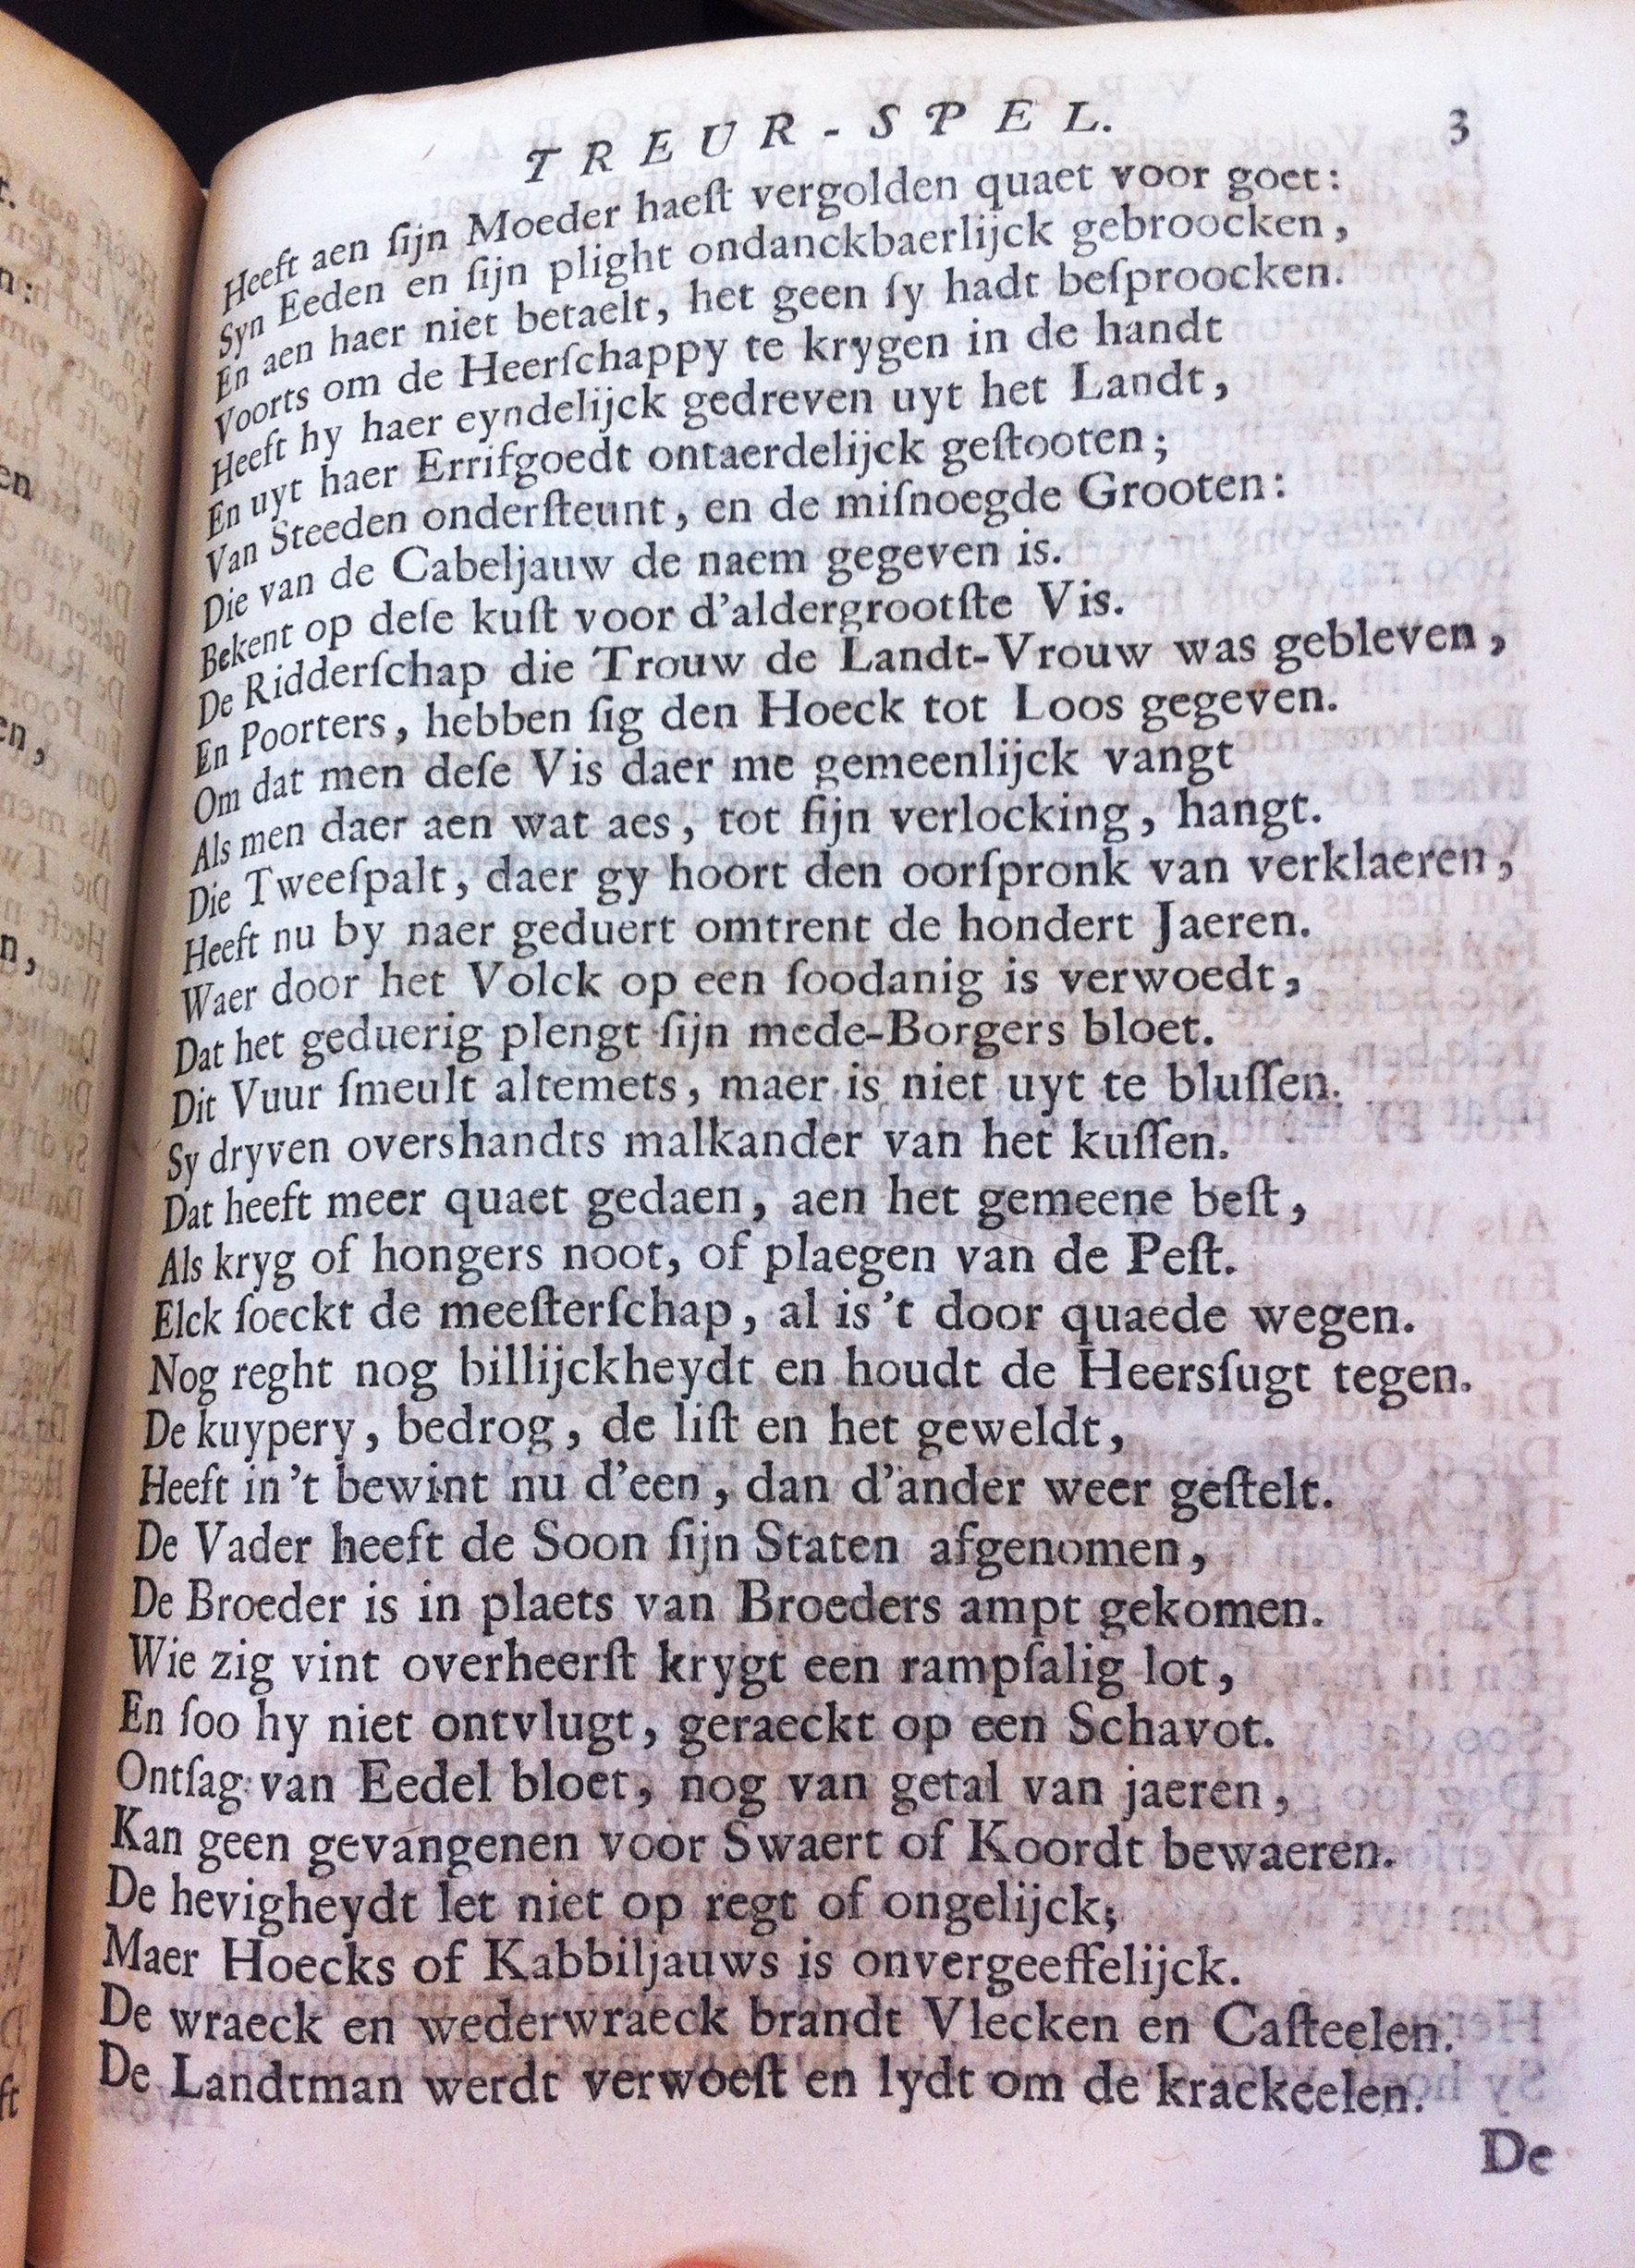 TREUR-SPEL. 3
Heeft aen ſijn Moeder haeſt vergolden quaet voor goet:
Syn Eeden en ſijn plight ondanckbaerlijck gebroocken,
En aen haer niet betaelt, het geen ſy hadt beſproocken.
Voorts om de Heerſchappy te krygen in de handt
Heeft hy haer eyndelijck gedreven uyt het Landt,
En uyt haer Errifgoedt ontaerdelijck geſtooten;
Van Steeden onderſteunt, en de miſnoegde Grooten:
Die van de Cabeljauw de naem gegeven is.
Bekent op deſe kuſt voor d'aldergrootſte Vis.
De Ridderſchap die Trouw de Landt-Vrouw was gebleven,
En Poorters, hebben ſig den Hoeck tot Loos gegeven.
Om dat men deſe Vis daer me gemeenlijck vangt
Als men daer aen wat aes, tot ſijn verlocking, hangt.
Die Tweeſpalt, daer gy hoort den oorſpronk van verklaeren,
Heeft nu by naer geduert omtrent de hondert Jaeren.
Waer door het Volck op een ſoodanig is verwoedt,
Dat het geduerig plengt ſijn mede-Borgers bloet.
Dit Vuur ſmeult altemets, maer is niet uyt te bluſſen.
Sy dryven overshandts malkander van het kuſſen.
Dat heeft meer quaet gedaen, aen het gemeene beſt,
Als kryg of hongers noot, of plaegen van de Peſt.
Elck ſoeckt de meeſterſchap, al is 't door quaede wegen.
Nog reght nog billijckheydt en houdt de Heersſugt tegen.
De kuypery, bedrog, de liſt en het geweldt,
Heeft in 't bewint nu d'een, dan d'ander weer geſtelt.
De Vader heeft de Soon ſijn Staten afgenomen,
De Broeder is in plaets van Broeders ampt gekomen.
Wie zig vint overheerſt krygt een rampſalig lot,
En ſoo hy niet ontvlugt, geraeckt op een Schavot.
Ontſag van Eedel bloet, nog van getal van jaeren,
Kan geen gevangenen voor Swaert of Koordt bewaeren.
De hevigheydt let niet op regt of ongelijck;
Maer Hoecks of Kabbiljauws is onvergeeffelijck.
De wraeck en wederwraeck brandt Vlecken en Caſteelen.
De Landtman werdt verwoeſt en lydt om de krackeelen.
De